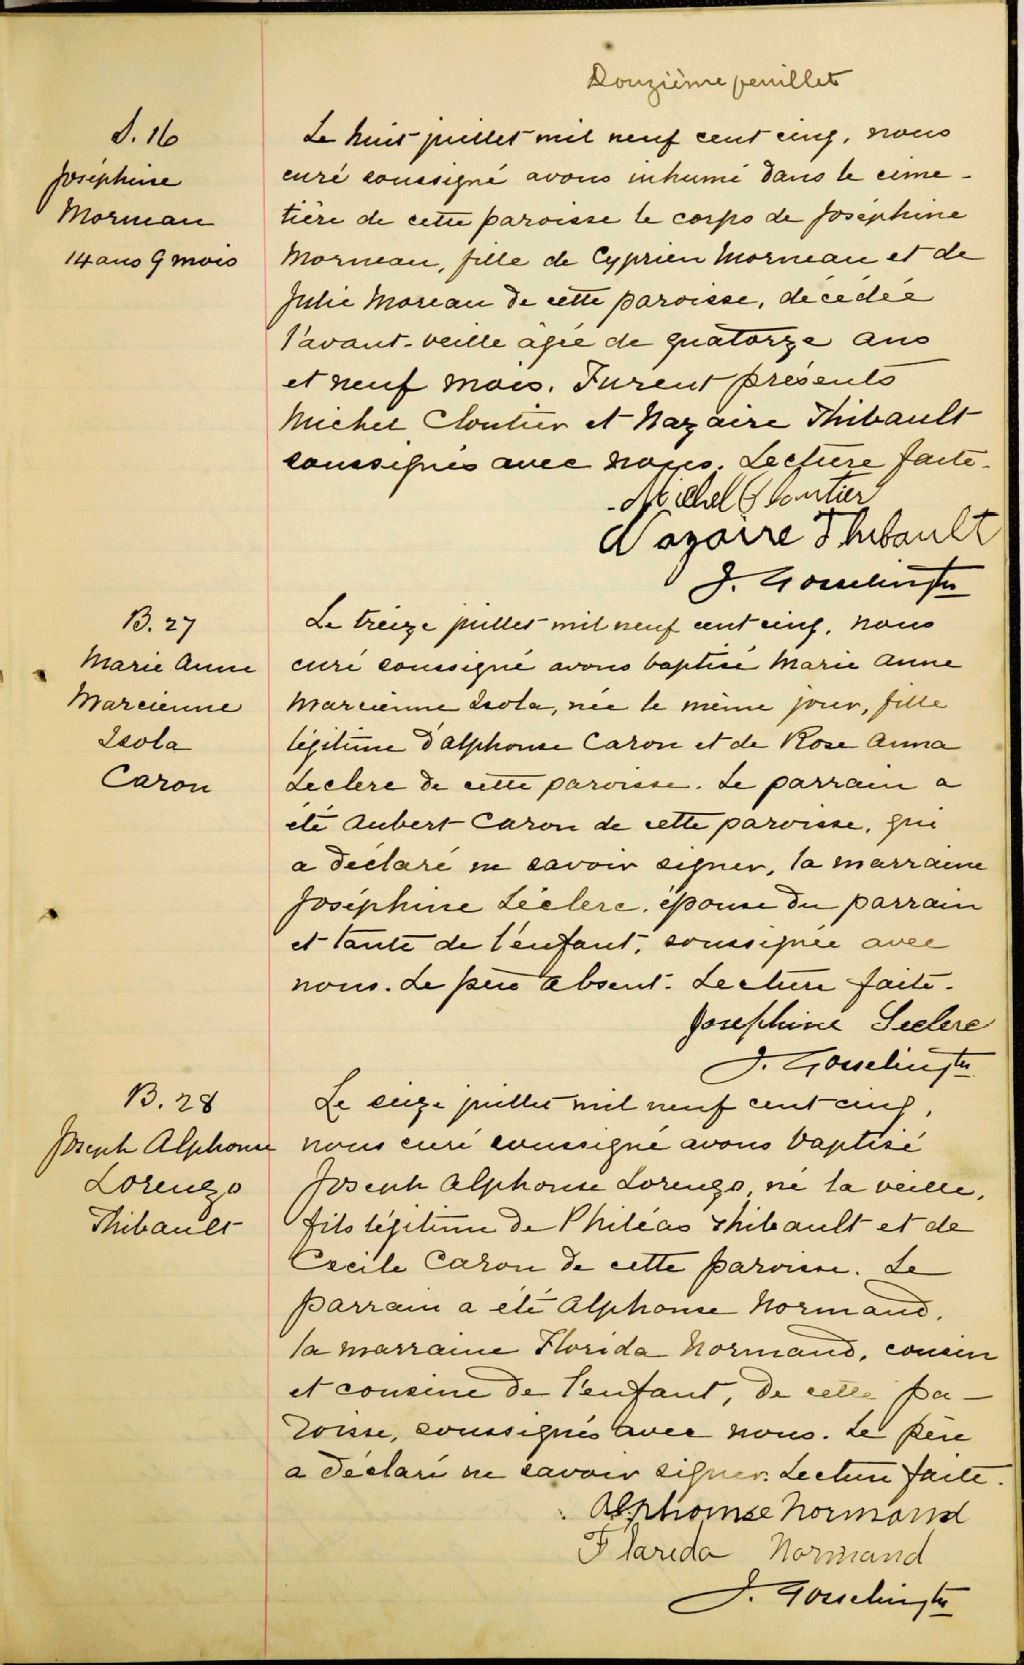 Douzième feuillet
S. 16
Joséphine
Morneau
14 ans 9 mois
Le huit juillet mil neuf cent cinq, nous
curé soussigné avons inhumé dans le cime-
tière de cette paroisse le corps de Joséphine
Morneau, fille de Cyprien Morneau et de
Julie Moreau de cette paroisse, décédée
l'avant-veille âgée de quatorze ans
et neuf mois. Furent présents
Michel Cloutier et Nazaire Thibault
soussignés avec nous. Lecture faite.
Michel Cloutier
Nazaire Thibault
J. Gosselin ptre
B. 27
Marie Anne
Marcienne
Isola
Caron
Le treize juillet mil neuf cent cinq, nous
curé soussigné avons baptisé Marie Anne
Marcienne Isola, née le même jour, fille
légitime d'Alphonse Caron et de Rose Anna
Leclerc de cette paroisse. Le parrain a
été Aubert Caron de cette paroisse, qui
a déclaré ne savoir signer, la marraine
Joséphine Léclerc, épouse du parrain
et tante de l'enfant, soussignée avec
nous. Le père absent. Lecture faite.
Josephine Leclerc
J. Gosselin ptre
B. 28
Joseph Alphonse
Lorenzo
Thibault
Le seize juillet mil neuf cent cinq,
nous curé soussigné avons baptisé
Joseph Alphonse Lorenzo, né la veille,
fils légitime de Philéas Thibault et de
Cécile Caron de cette paroisse. Le
parrain a été Alphonse Normand,
la marraine Florida Normand, cousin
et cousine de l'enfant, de cette pa-
roisse, soussignés avec nous. Le père
a déclaré ne savoir signer. Lecture faite.
Alphonse Normand
Florida Normand
J. Gosselin ptre